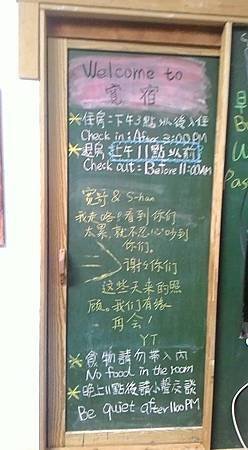 Welcome to
寬宿
住房:下午3點以後入住
Check in: After 3:00PM
退房:上午11點以前
Check out: Before 11:00AM
寬哥 & S-han
我走咯!看到你们
太累,就不忍心吵到
你们.
谢谢你们
这些天来的照
顾。我们有缘
再会!
YT
食物請勿帶入內
No food in the room
晚上11點後請小聲交談
Be quiet after 11:00PM
早